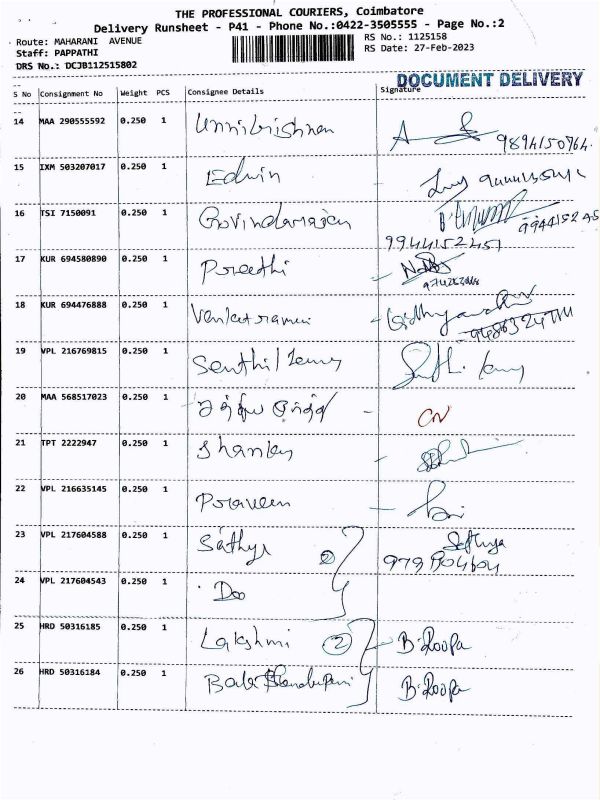 THE PROFESSIONAL COURIERS, Coimbatore
Delivery Runsheet - P41 - Phone No.:0422-3505555 - Page No.:2
Route: MAHARANI AVENUE
RS No.: 1125158
Staff: PAPPATHI
RS Date: 27-Feb-2023
DRS No.: DCJB112515802
DOCUMENT DELIVERY
S No Consignment No Weight PCS Consignee Details Signature
14 MAA 290555592 0.250 1 Unnikrishnan
9894150764
15 IXM 503207017 0.250 1 Edwin
16 TSI 7150091 0.250 1 Govindarajan
9944152451
17 KUR 694580890 0.250 1 Preethi
18 KUR 694476888 0.250 1 Venkatraman
19 VPL 216769815 0.250 1 Senthil
20 MAA 568517023 0.250 1 CN
21 TPT 2222947 0.250 1
22 VPL 216635145 0.250 1 Praveen
23 VPL 217604588 0.250 1 Sathya 2 Sathya
24 VPL 217604543 0.250 1 Do
25 HRD 50316185 0.250 1 Lakshmi 2 B.Roopa
26 HRD 50316184 0.250 1 B.Roopa